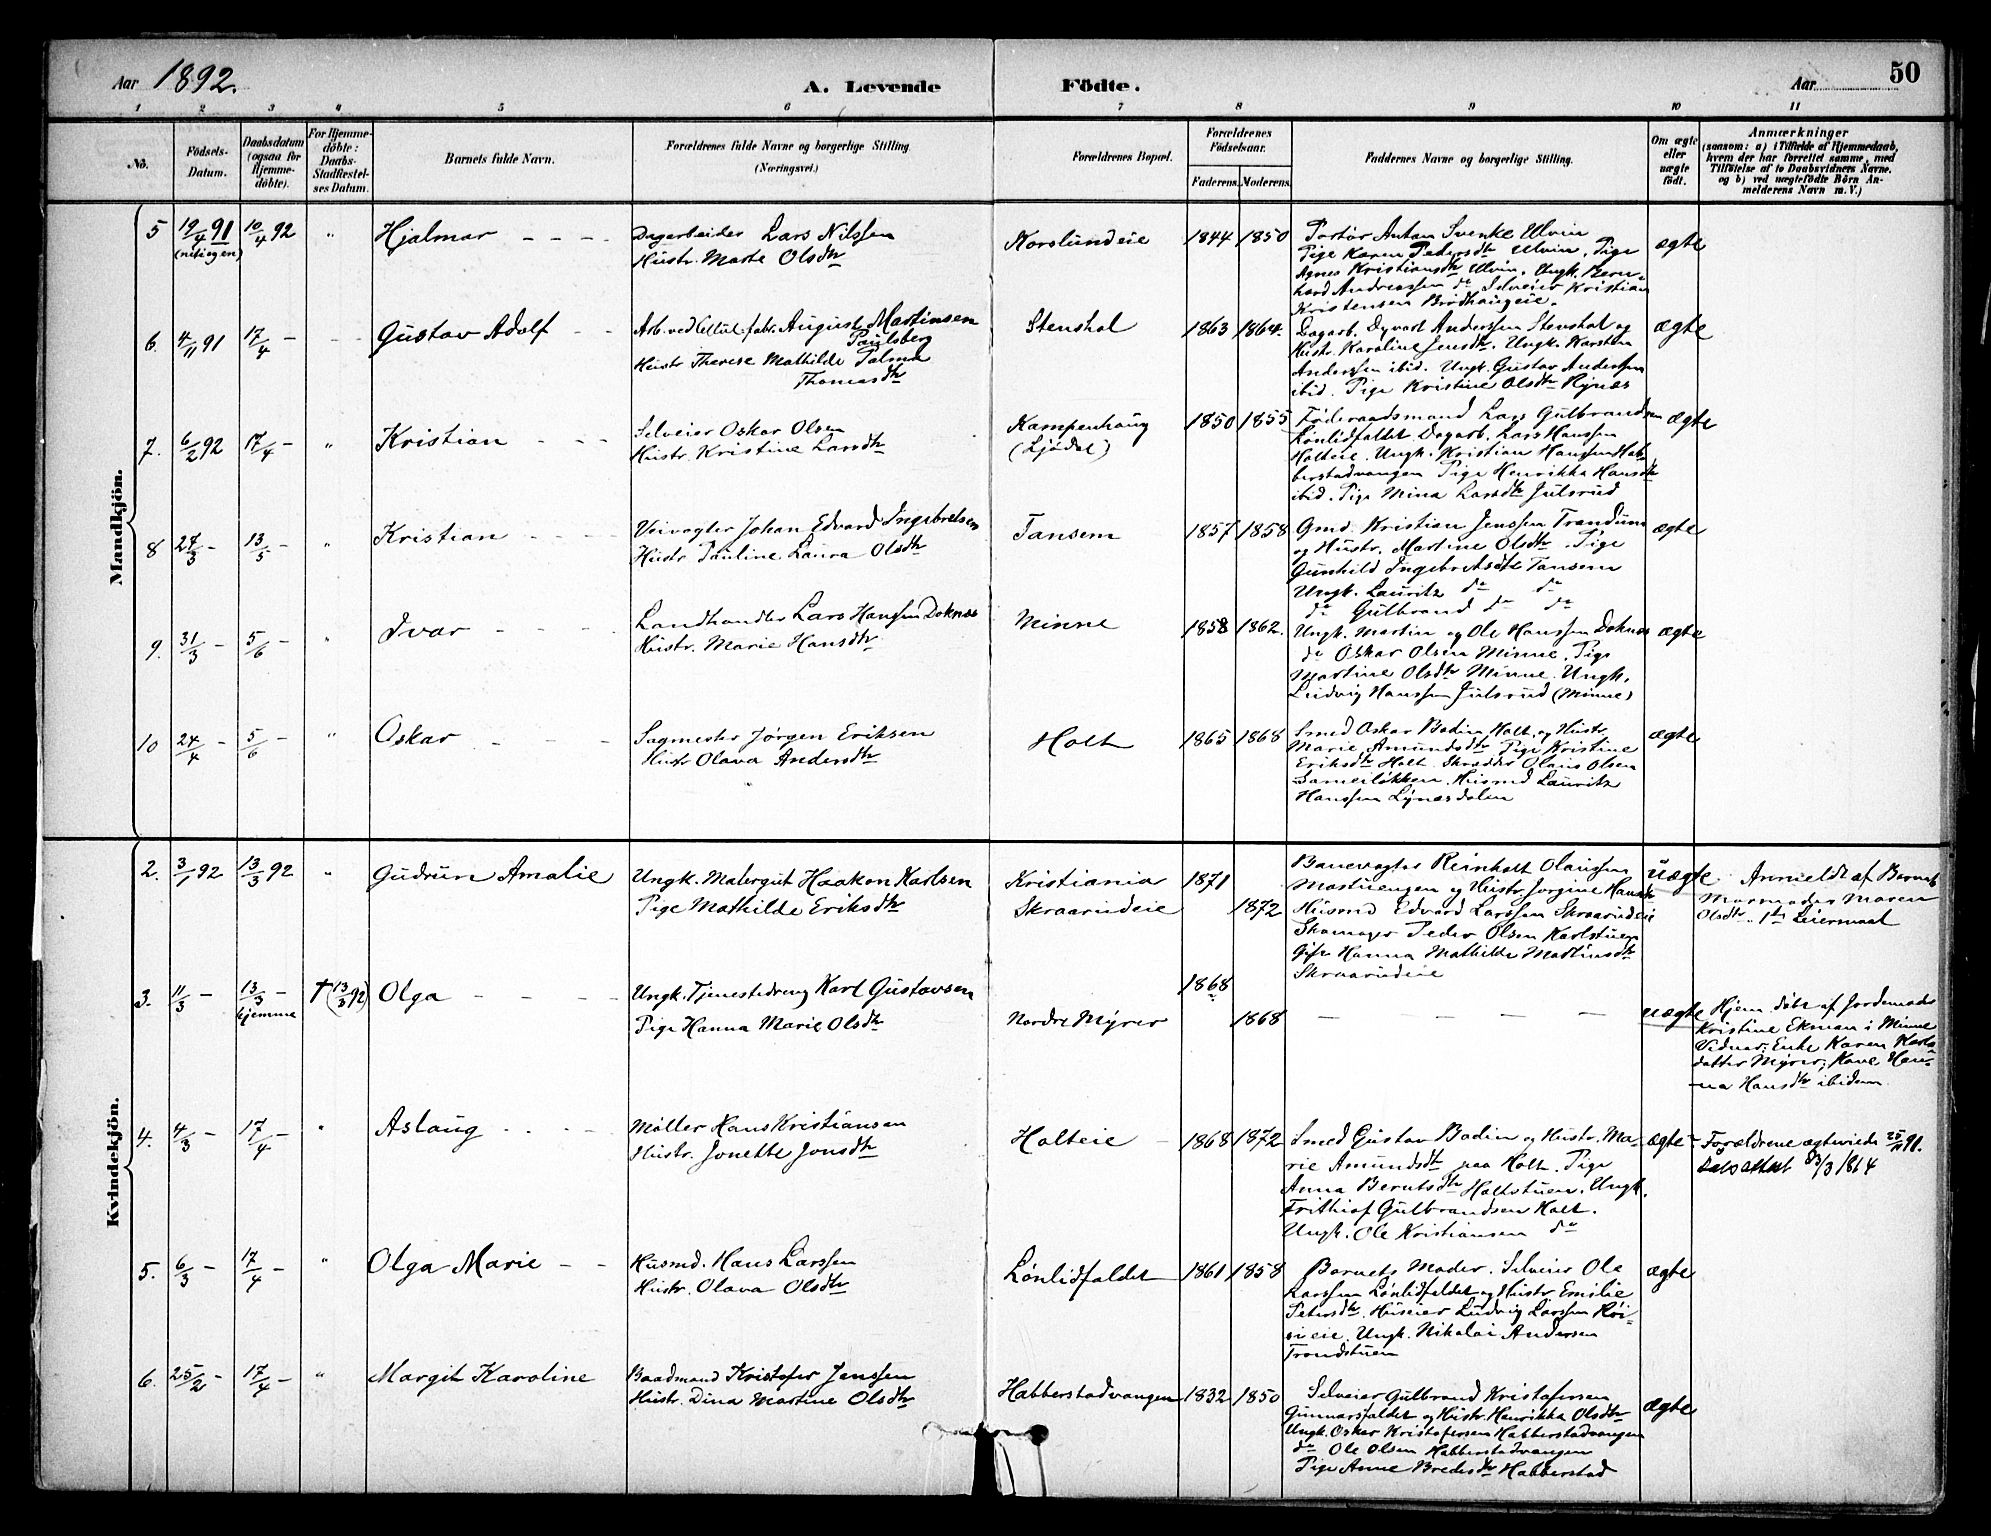 Aar 1892.
A. Levende Födte.
Aar
50
1 2 3 4 5 6 7 8 9 10 11
No.
Födsels-Datum.
Daabsdatum (ogsaa for Hjemmedöbte).
For Hjemmedöbte: Daabs-Stadfæstelses Datum.
Barnets fulde Navn.
Forældrenes fulde Navne og borgerlige Stilling (Næringsvei.)
Forældrenes Bopæl.
Forældrenes Födselsaar.
Faderens. Moderens.
Faddernes Navne og borgerlige Stilling.
Om ægte eller uægte födt.
Anmærkninger
(saasom: a) i Tilfælde af Hjemmedaab,
hvem der har forrettet samme, med
Tilföielse af to Daabsvidners Navne.
og b) ved uægtefödte Börn An-
melderens Navn m. V.)
Mandkjön.
5 19/4 91 (nitiogen) 10/4 92 " Hjalmar
Dagarbeider Lars Nilssen
Hustr. Marte Olsdtr
Korslundeie 1844 1850
Portør Anton Svenke Ulvin
Pige Karen Pedersdtr Ulvin, Pige
Agnes Kristiansdtr Ulvin, Ungk. Bern-
hard Andreassen do Selveier Kristian
Kristensen Brødhaugeie.
ægte
6. 4/11 91 17/4 - Gustav Adolf
Arb. ved Cellul. fabr. August Martinsen
Paulsberg
Hustr Therese Mathilde Palma
Thomasdtr
Stenshol 1863 1864.
Dagarb. Dyvart Anderssen Stenshol og
Hustr. Karoline Jensdtr. Ungk. Karsten
Anderssen ibid. Ungk. Gustav Anderssen
ibid. Pige Kristine Olsdtr Rynæs
ægte
7. 6/2 92 17/4 - " Kristian
Selveier Oskar Olsen
Hustr. Kristine Larsdtr
Kampenhaug
(Ljødal)
1850 1855
Føderaadsmand Lars Gulbrandsen
Lønlidfaldet Dagarb. Lars Hanssen
Holteie. Ungk. Kristian Hanssen Hab-
berstadvangen Pige Henrikka Hansdtr
ibid. Pige Mina Larsdtr Julsrud
ægte
8 27/3 - 13/5 - " Kristian
Veivogter Johan Edvard Ingebretsen
Hustr. Pauline Laura Olsdtr
Tansem 1857 1858
Gmd. Kristian Jenssen Trandum
og Hustr. Martine Olsdtr. Pige
Gunhild Ingebretsdtr Tansem
Ungk. Lauritz do do
do Gulbrand do do
ægte
9. 31/3 - 5/6 - " Ivar
Landhandler Lars Hanssen Doknæs
Hustr. Marie Hansdtr
Minne 1858 1862.
Ungk. Martin og Ole Hanssen Doknæs
do Oskar Olsen Minne. Pige
Martine Olsdtr Minne. Ungk.
Ludvig Hanssen Julsrud (Minne)
ægte
10 24/4 - 5/6 - " Oskar
Sagmester Jørgen Eriksen
Hustr Olava Andersdtr
Holt 1865 1868
Smed Oskar Bodin Holt, og Hustr
Marie Amundsdtr Pige Kristine
Eriksdtr Holt. Skrædder Olaus Olsen
Husmd Lauritz
Hanssen Lynæsdalen
ægte
Kvindekjön.
2. 3/1 92 13/3 92 " Gudrun Amalie
Ungk. Malergut Haakon Karlsen
Pige Mathilde Eriksdtr
Kristiania 1871
Skraarudeie 1872
Banevogter Reinholt Olaussen
Mastuengen og Hustr. Jorgine Hansdtr
Husmd Edvard Larssen Skraarudeie
Skomager Peder Olsen Karlstuen
Gifte Hanna Mathilde Martinsdtr
Skraarudeie
uægte
Anmeldt af Barnets
Mormoder Maren
Olsdtr. 1ste Leiermaal
3. 11/3 - 13/3 - hjemme † (13/3 92) Olga
Ungk. Tjenestedreng Karl Gustavsen
Pige Hanna Marie Olsdtr
1868
Nordre Myrer 1868
uægte
Hjem. døbt af Jordemoder
Kristine Ekman i Minne
Vidner: Enke Karen Karls-
datter Myrer; Kone Han-
na Hansdtr ibidem.
4. 4/3 - 17/4 - " Aslaug
Møller Hans Kristiansen
Hustr. Jonette Jonsdtr
Holteie 1868 1872
Smed Gustav Bodin og Hustr. Ma-
rie Amundsdtr paa Holt. Pige
Anna Berntsdtr Holtstuen. Ungk.
Frithiof Gulbrandsen Holt.
Ungk. Ole Kristiansen do
ægte -
Forældrene ægteviede 25/11 91.
Døbsattest 23/3 1814
5. 6/3 - 17/4 - " Olga Marie
Husmd. Hans Larssen
Hustr. Olava Olsdtr
Lønlidfaldet 1861 1858
Barnets Moder. Selveier Ole
Larssen Lønlidfaldet og Hustr Emilie
Petersdtr. Huseier Ludvig Larssen Røi-
sieie. Ungk. Nikolai Andersen
Trondstuen
ægte
6. 25/2 - 17/4 - " Margit Karoline
Baadmand Kristofer Jenssen
Hustr. Dina Martine Olsdtr
Habberstadvangen 1832 1850
Selveier Gulbrand Kristofersen
Gunnarsfaldet og Hustr. Henrikka Olsdtr
Ungk. Oskar Kristofersen Habberstadvangen
do Ole Olsen Habberstadvangen
Pige Anne Bredesdtr Habberstad
ægte